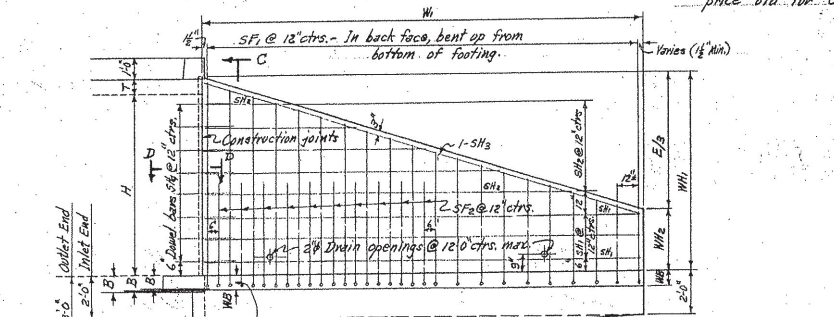 price bid for
W1
1½"
SF1 @ 12" ctrs. - In back face, bent up from
bottom of footing.
Varies (1½" Min.)
C
1'-0"
T
SH2
Construction joints
1-SH3
D
D
H
6" Dowel bars SH4 @ 12" ctrs.
SH2 @ 12" ctrs.
12"
E/3
WH1
SH2
SF2 @ 12" ctrs.
12"
SH1
6" SH1 @ 12" ctrs.
WH2
2"ϕ Drain openings @ 12'-0" ctrs. max.
9"
SH1
Outlet End
Inlet End
B
B
B
WB
WB
2'-0"
2'-0"